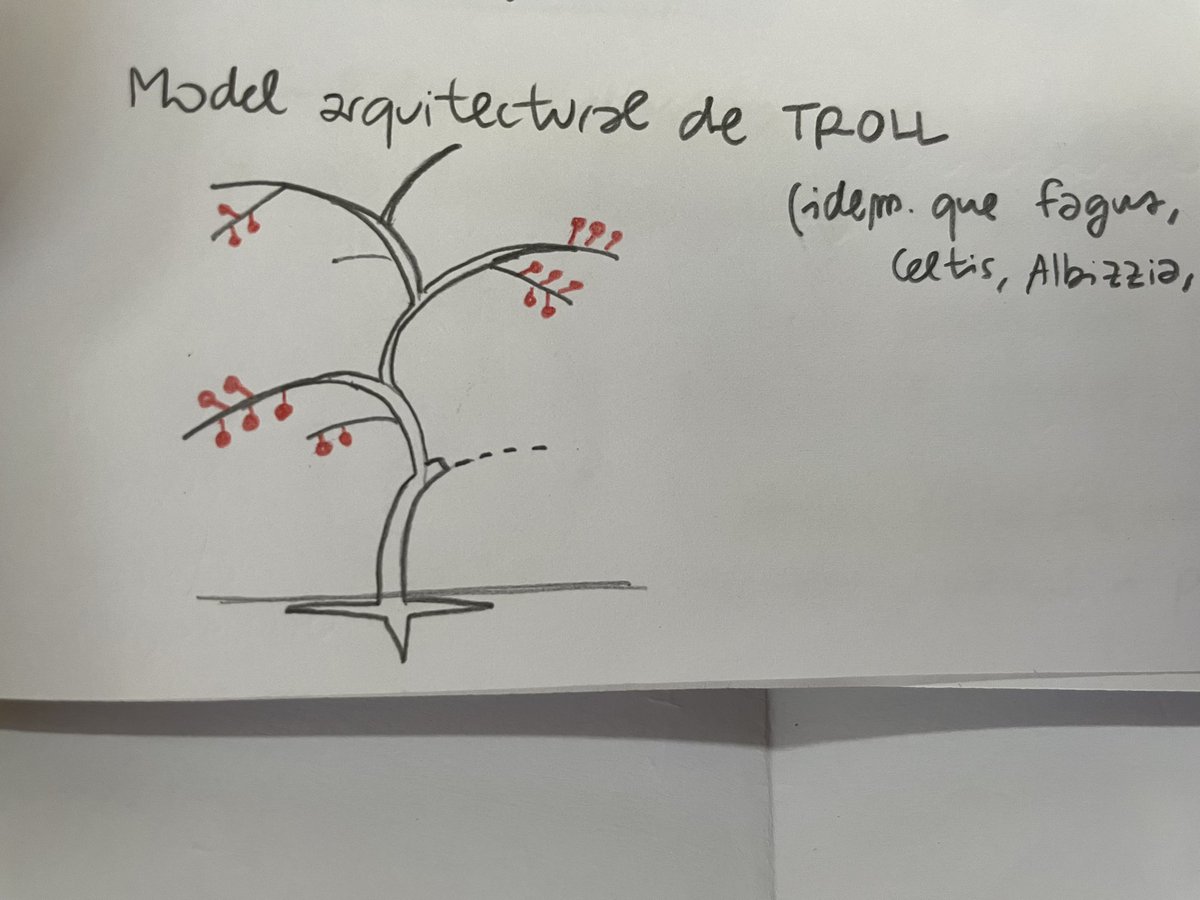 Model arquitectural de TROLL
(idem. que fagus,
Celtis, Albizzia,